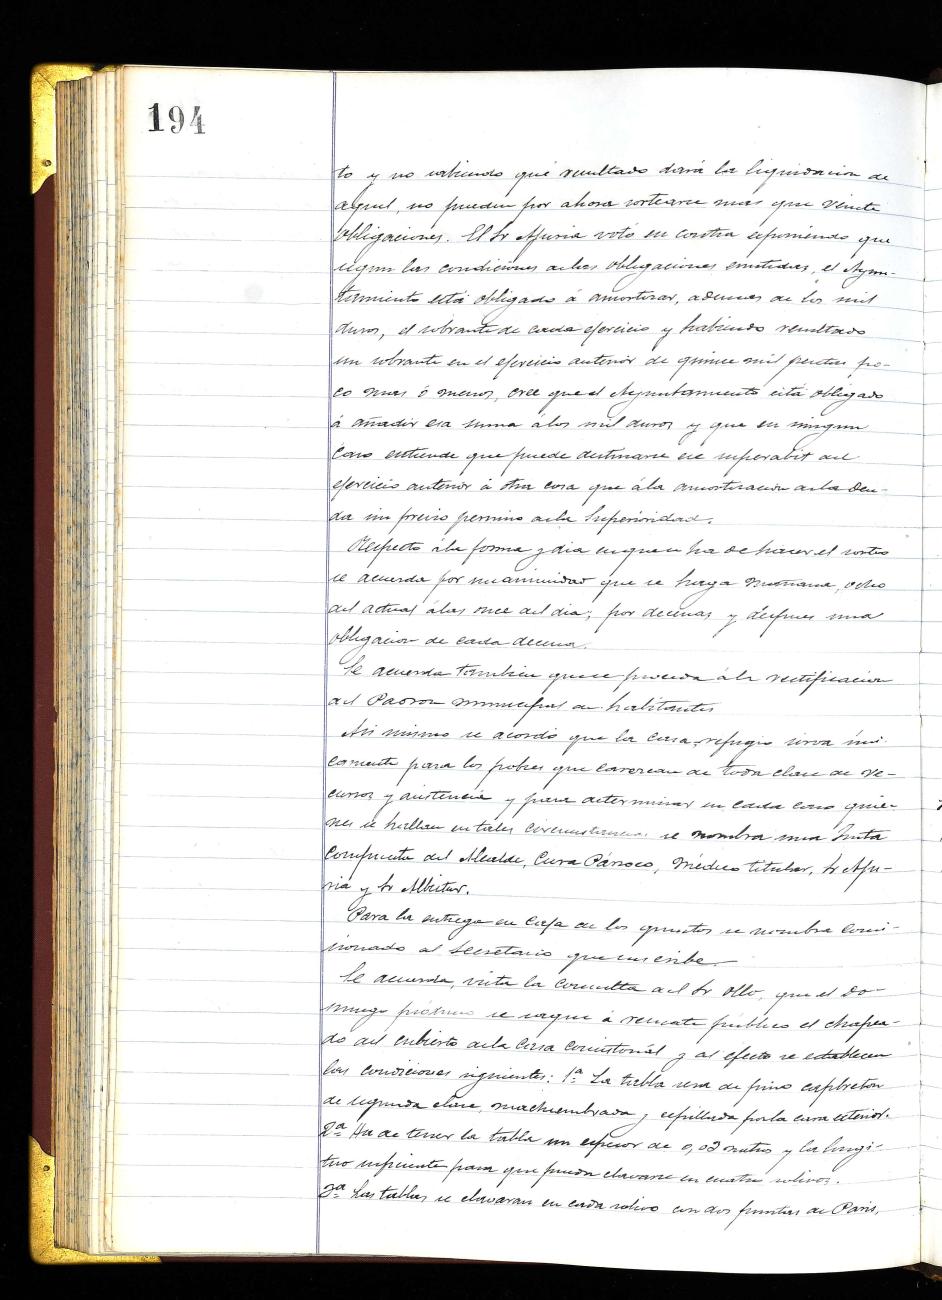 194
to y no sabiendo qué resultado dará la liquidacion de
aquel, no pueden por ahora sortearse mas que veinte
obligaciones. El Sr Ajuria votó en contra esponiendo que
segun las condiciones de las obligaciones emitidas, el Ayun-
tamiento está obligado á amortizar, ademas de los mil
duros, el sobrante de cada ejercicio y habiendo resultado
un sobrante en el ejercicio anterior de quince mil pesetas po-
co mas ó menos, cree que el Ayuntamiento está obligado
á añadir esa suma á los mil duros y que en ningun
caso entiende que puede destinarse ese superabit del
ejercicio anterior á otra cosa que á la amortizacion de la deu-
da sin previo permiso de la Superioridad.
Respecto á la forma y dia en que se ha de hacer el sorteo
se acuerda por unanimidad que se haga mañana, ocho
del actual á las once del dia, por decenas y despues una
obligacion de cada decena.
Se acuerda tambien que se proceda á la rectificacion
del Padron municipal de habitantes
Asi mismo se acordó que la casa refugio sirva úni-
camente para los pobres que carezcan de toda clase de re-
cursos y asistencia y para determinar en cada caso quie-
nes se hallan en tales circunstancias se nombra una Junta
compuesta del Alcalde, Cura Párroco, Médico titular, Sr Aju-
ria y Sr Albistur.
Para la entrega en Caja de los quintos se nombra comi-
sionado al Secretario que suscribe.
Se acuerda, vista la consulta del Sr Ollo, que el Do-
mingo próximo se saque á remate público el chapea-
do del cubierto de la Casa Consistorial y al efecto se establecen
las condiciones siguientes: 1ª La tabla sera de pino capbreton
de segunda clase, machiembrada y cepillada por la cara exterior.
2ª Ha de tener la tabla un espesor de 0,02 metros y la longi-
tud suficiente para que pueda clavarse en cuatro solivos.
3ª Las tablas se clavaran en cada solivo con dos puntas de Paris,